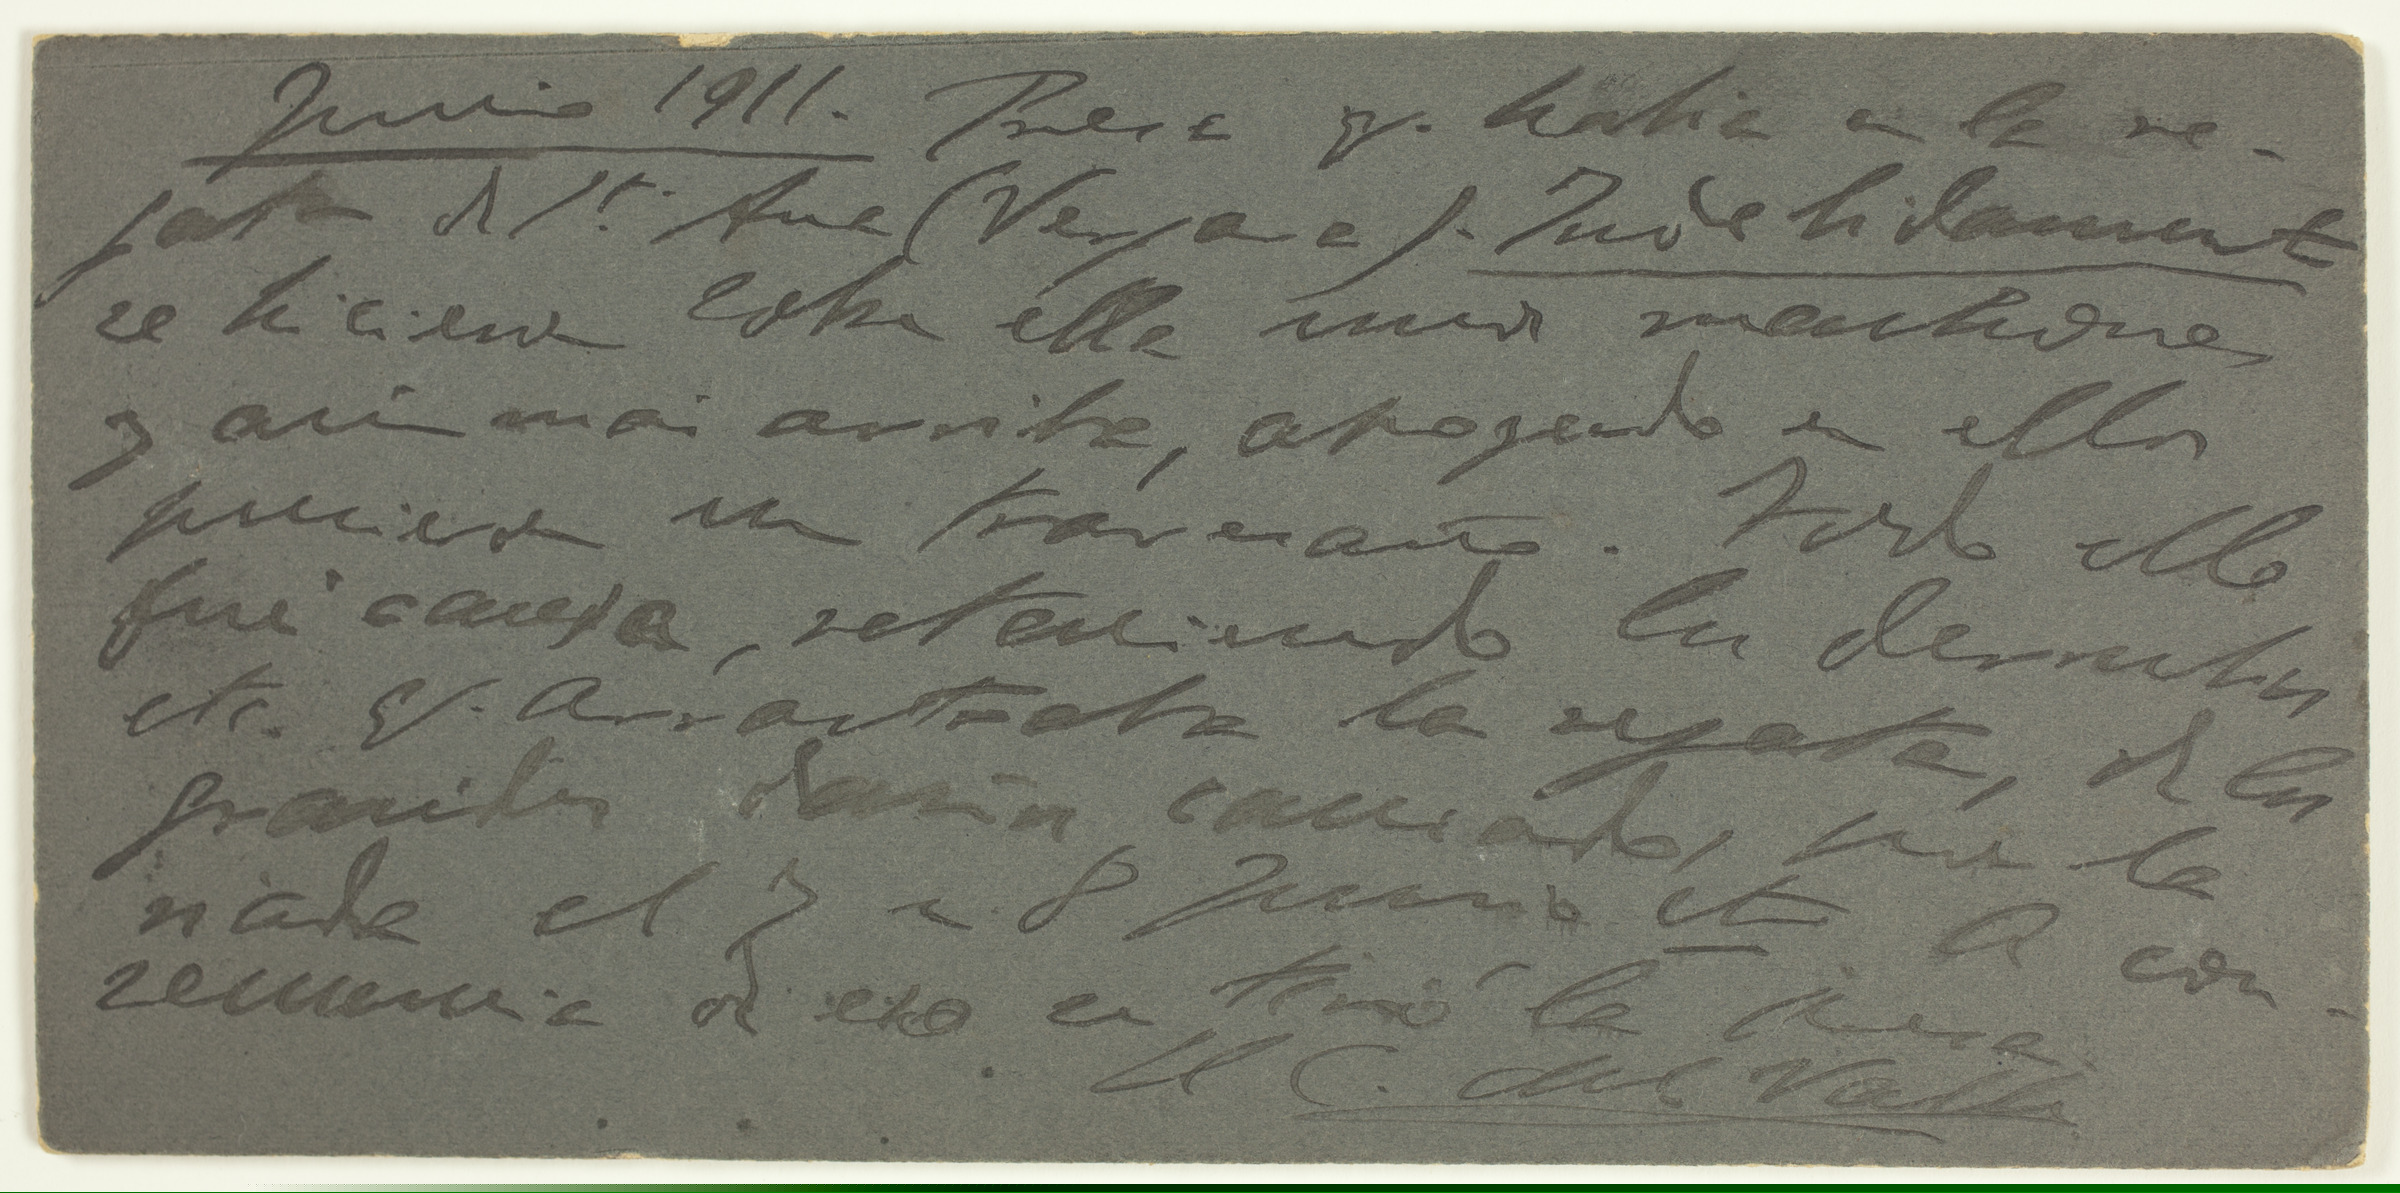 Junio 1911. Presa q. habia en la re-
gata de Sta. Ana (Vergara). Indebidament
se hicieron sobre ella unos machones
y aun mas arriba, apoyando en ellos
pusieron un travesaño. Todo ello
fué causa, reteniendo los derrubios
etc. q. arrastraba la regata, de los
grandes daños causados por la
riada el 7 u 8 Junio A con-
secuencia de eso se tiró la presa
El C. del Valle